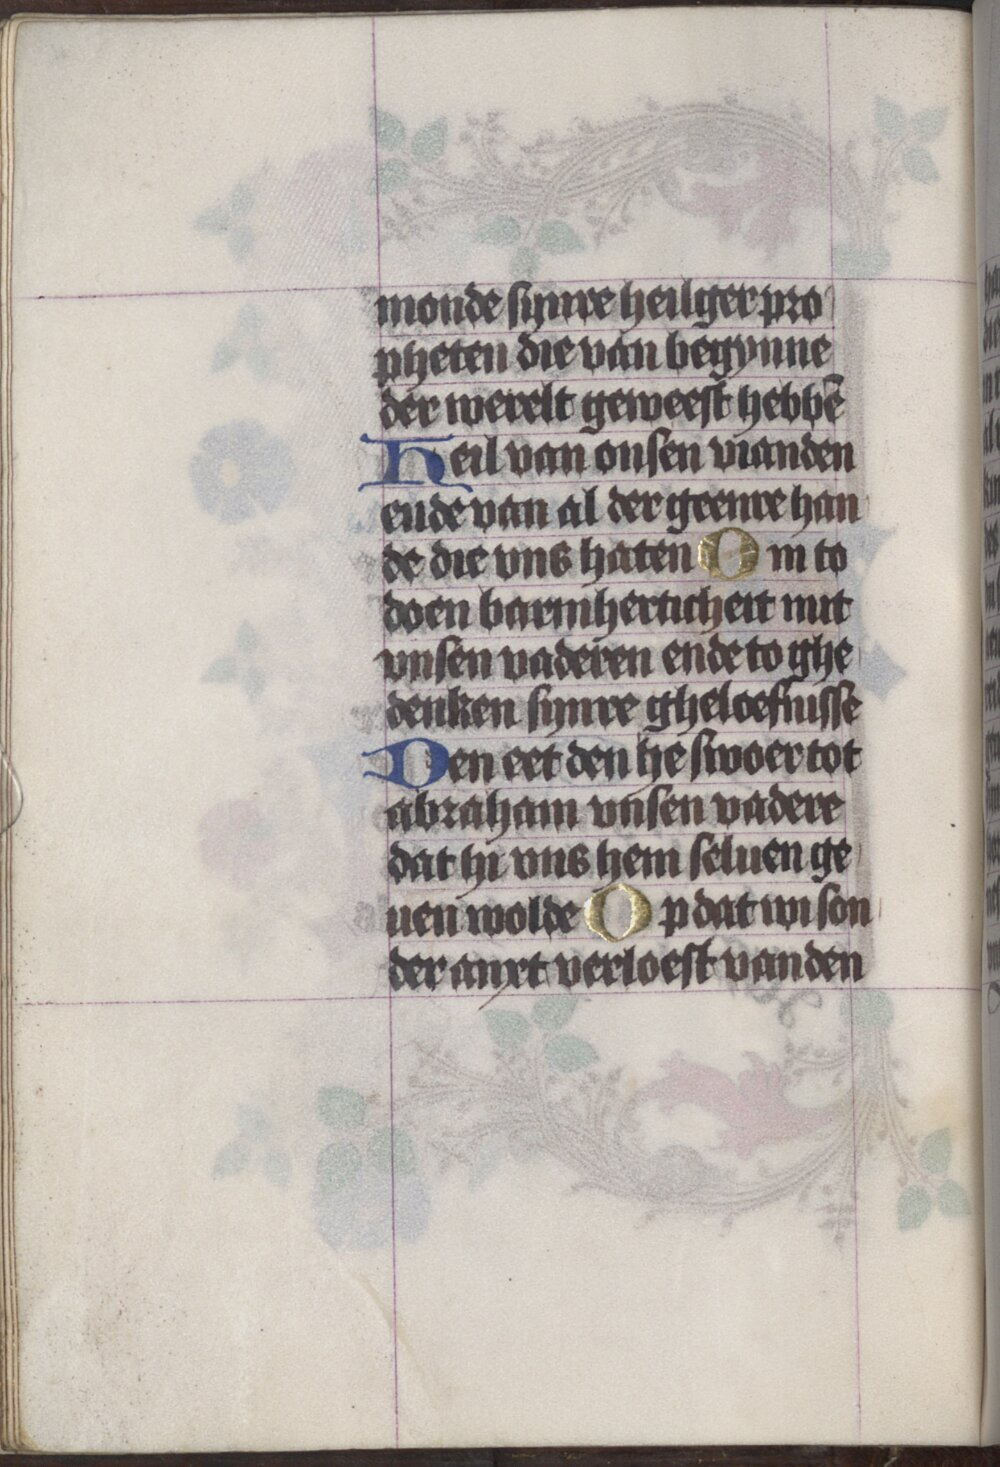 monde synre heilger pro
pheten die van begynne
der werelt geweest hebbē
Heil van onsen vianden
ende van al der geenre han
de die vns haten Om to
doen barmherticheit mit
vnsen vaderen ende to ghe
denken synre gheloefnisse
Den eet den he swoer tot
abraham vnsen vadere
dat hi vns hem seluen ge
uen wolde Op dat wi son
der anxt verloest van den